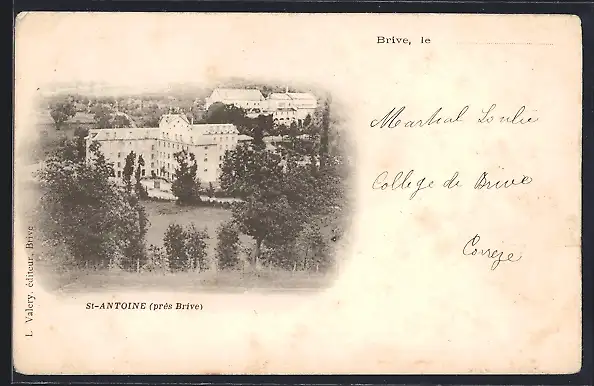 Brive, le
Martial Soulié
College de Brive
Correze
St-ANTOINE (près Brive)
L. Valery, éditeur, Brive